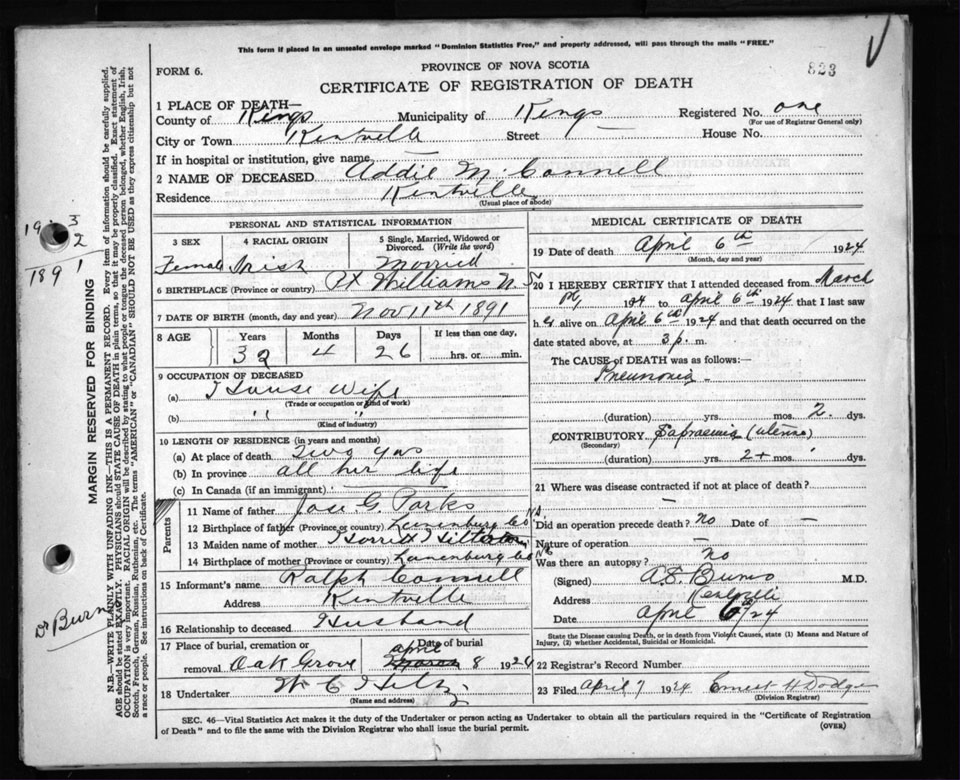 This form if placed in an unsealed envelope marked "Dominion Statistics Free," and properly addressed, will pass through the mails "FREE."
FORM 6.
PROVINCE OF NOVA SCOTIA
823
CERTIFICATE OF REGISTRATION OF DEATH
1 PLACE OF DEATH—
County of Kings Municipality of Kings Registered No. one
(For use of Registrar General only)
City or Town Kentville Street — House No.
If in hospital or institution, give name
2 NAME OF DECEASED Addie M Connell
Residence Kentville
(Usual place of abode)
PERSONAL AND STATISTICAL INFORMATION
3 SEX 4 RACIAL ORIGIN 5 Single, Married, Widowed or Divorced. (Write the word)
Female Irish Married
6 BIRTHPLACE (Province or country) Pt Williams N.S
7 DATE OF BIRTH (month, day and year) Nov 11th 1891
8 AGE Years Months Days If less than one day,
32 4 26 hrs. or min.
9 OCCUPATION OF DECEASED
(a) House Wife
(Trade or occupation or kind of work)
(b) " " "
(Kind of industry)
10 LENGTH OF RESIDENCE (in years and months)
(a) At place of death Two yrs
(b) In province all her life
(c) In Canada (if an immigrant)
Parents
11 Name of father G. Parks
12 Birthplace of father (Province or country) Lunenburg Co N.S.
13 Maiden name of mother
14 Birthplace of mother (Province or country) Lunenburg Co NS
15 Informant's name Ralph Connell
Address Kentville
16 Relationship to deceased Husband
17 Place of burial, cremation or removal Oak Grove Date of burial April 8 1924
18 Undertaker W C Hiltz
(Name and address)
MEDICAL CERTIFICATE OF DEATH
19 Date of death April 6th 1924
(Month, day and year)
20 I HEREBY CERTIFY that I attended deceased from March
1924 to April 6th 1924 that I last saw
her alive on April 6th 1924 and that death occurred on the
date stated above, at 3 p. m.
The CAUSE OF DEATH was as follows:—
Pneumonia
(duration) yrs. mos. 2 dys.
CONTRIBUTORY Sapraemia
(Secondary)
(duration) yrs. 2+ mos. dys.
21 Where was disease contracted if not at place of death?
—
Did an operation precede death? No Date of —
Nature of operation —
Was there an autopsy? No
(Signed) M.D.
Address Kentville
Date April 6th/24
State the Disease causing Death, or in death from Violent Causes, state (1) Means and Nature of Injury, (2) whether Accidental, Suicidal or Homicidal.
22 Registrar's Record Number
23 Filed April 7 1924 Ernest H Dodge
(Division Registrar)
SEC. 46—Vital Statistics Act makes it the duty of the Undertaker or person acting as Undertaker to obtain all the particulars required in the "Certificate of Registration
of Death" and to file the same with the Division Registrar who shall issue the burial permit. (OVER)
MARGIN RESERVED FOR BINDING
N.B.—WRITE PLAINLY WITH UNFADING INK—THIS IS A PERMANENT RECORD. Every item of information should be carefully supplied.
AGE should be stated EXACTLY. PHYSICIANS should STATE CAUSE OF DEATH in plain terms, so that it may be properly classified. Exact statement of
OCCUPATION is very important. RACIAL ORIGIN will be described by stating to what people or tongue the deceased person belonged, whether English, Irish,
Scotch, French, German, Russian, Ruthenian, etc. The terms "AMERICAN" or "CANADIAN" SHOULD NOT BE USED as they express citizenship but not
a race or people. See instructions on back of Certificate.
1891